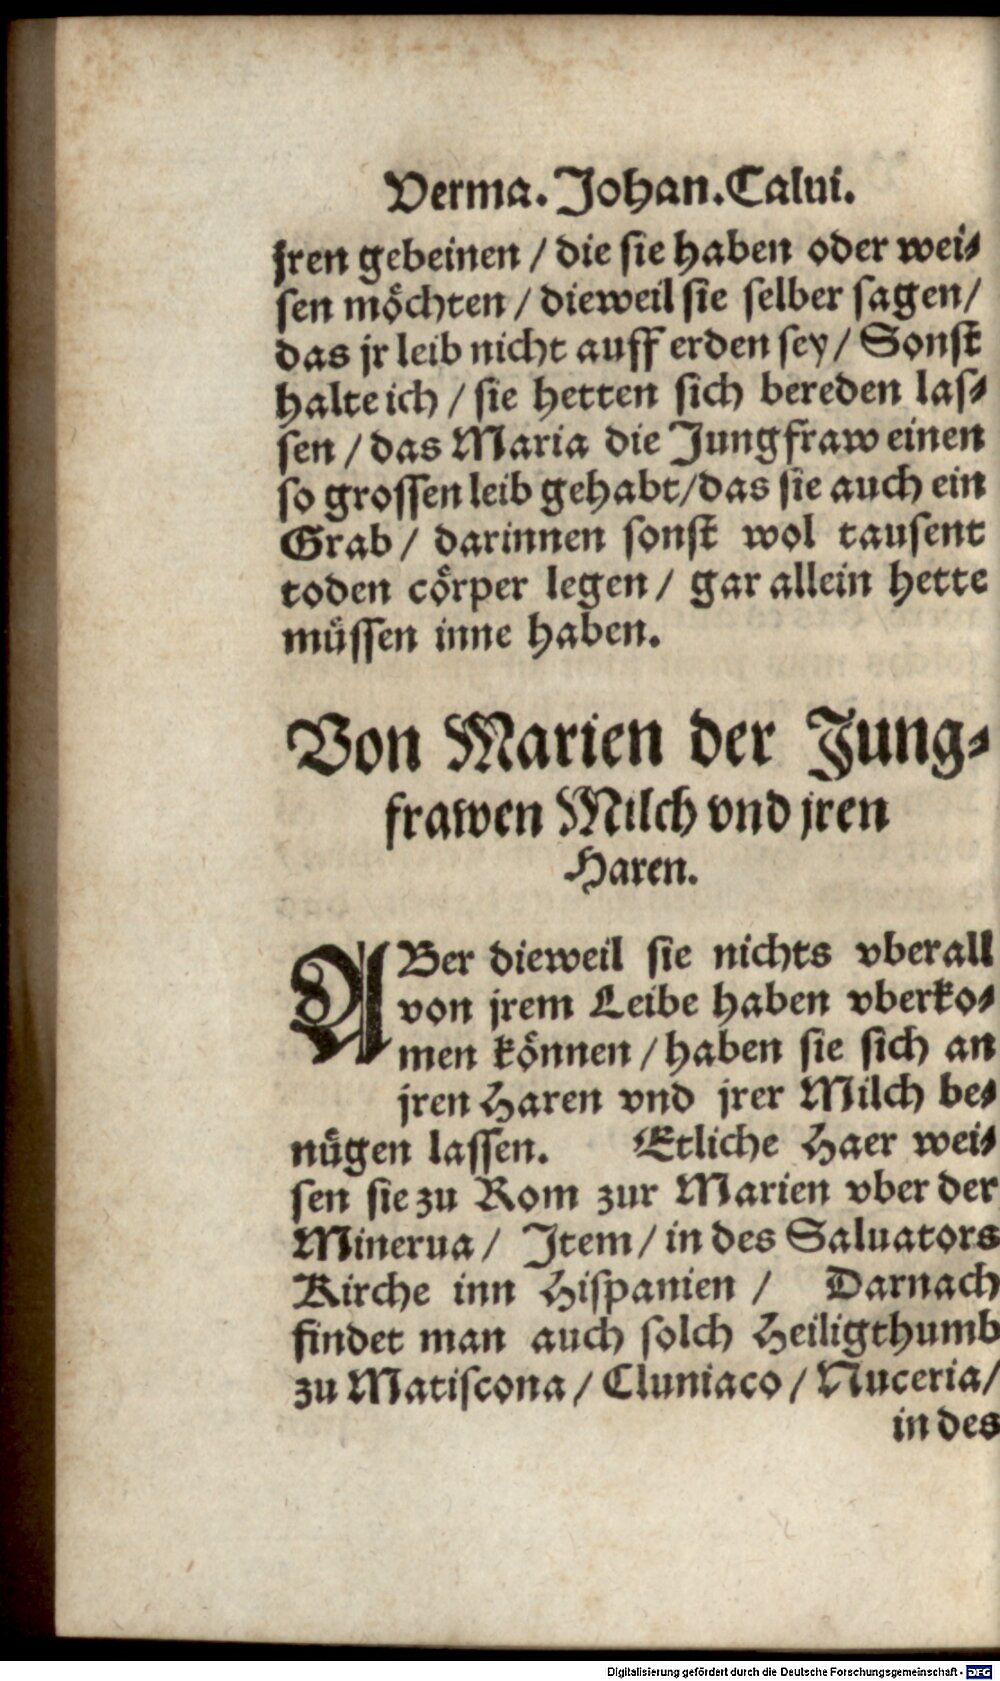 Verma. Johan. Calui.
jren gebeinen / die sie haben oder wei⸗
sen möchten / dieweil sie selber sagen /
das jr leib nicht auff erden sey / Sonst
halte ich / sie hetten sich bereden las⸗
sen / das Maria die Jungfraw einen
so grossen leib gehabt / das sie auch ein
Grab / darinnen sonst wol tausent
toden cörper legen / gar allein hette
müssen inne haben.
Von Marien der Jung⸗
frawen Milch vnd jren
Haren.
ABer dieweil sie nichts vberall
von jrem Leibe haben vberko⸗
men können / haben sie sich an
jren Haren vnd jrer Milch be⸗
nügen lassen. Etliche Haer wei⸗
sen sie zu Rom zur Marien vber der
Minerua / Jtem / in des Saluators
Kirche inn Hispanien / Darnach
findet man auch solch Heiligthumb
zu Matiscona / Cluniaco / Nuceria /
in des
Digitalisierung gefördert durch die Deutsche Forschungsgemeinschaft - DFG